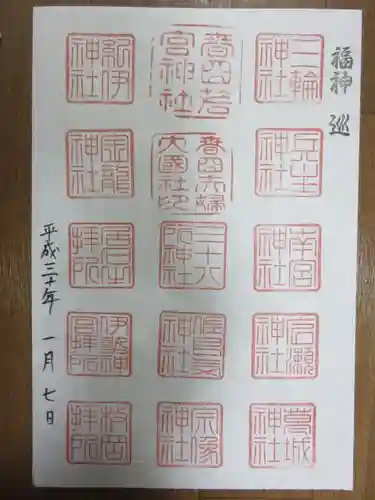 福神 巡
三輪
神社
兵主
神社
南宮
神社
広瀬
神社
葛城
神社
春日若
宮神社
春日夫婦
大國社印
三十八
所神社
神社
宗像
神社
紀伊
神社
金龍
神社
拝所
伊勢神
宮拝所
枚岡
拝所
平成三十年 一月 七日